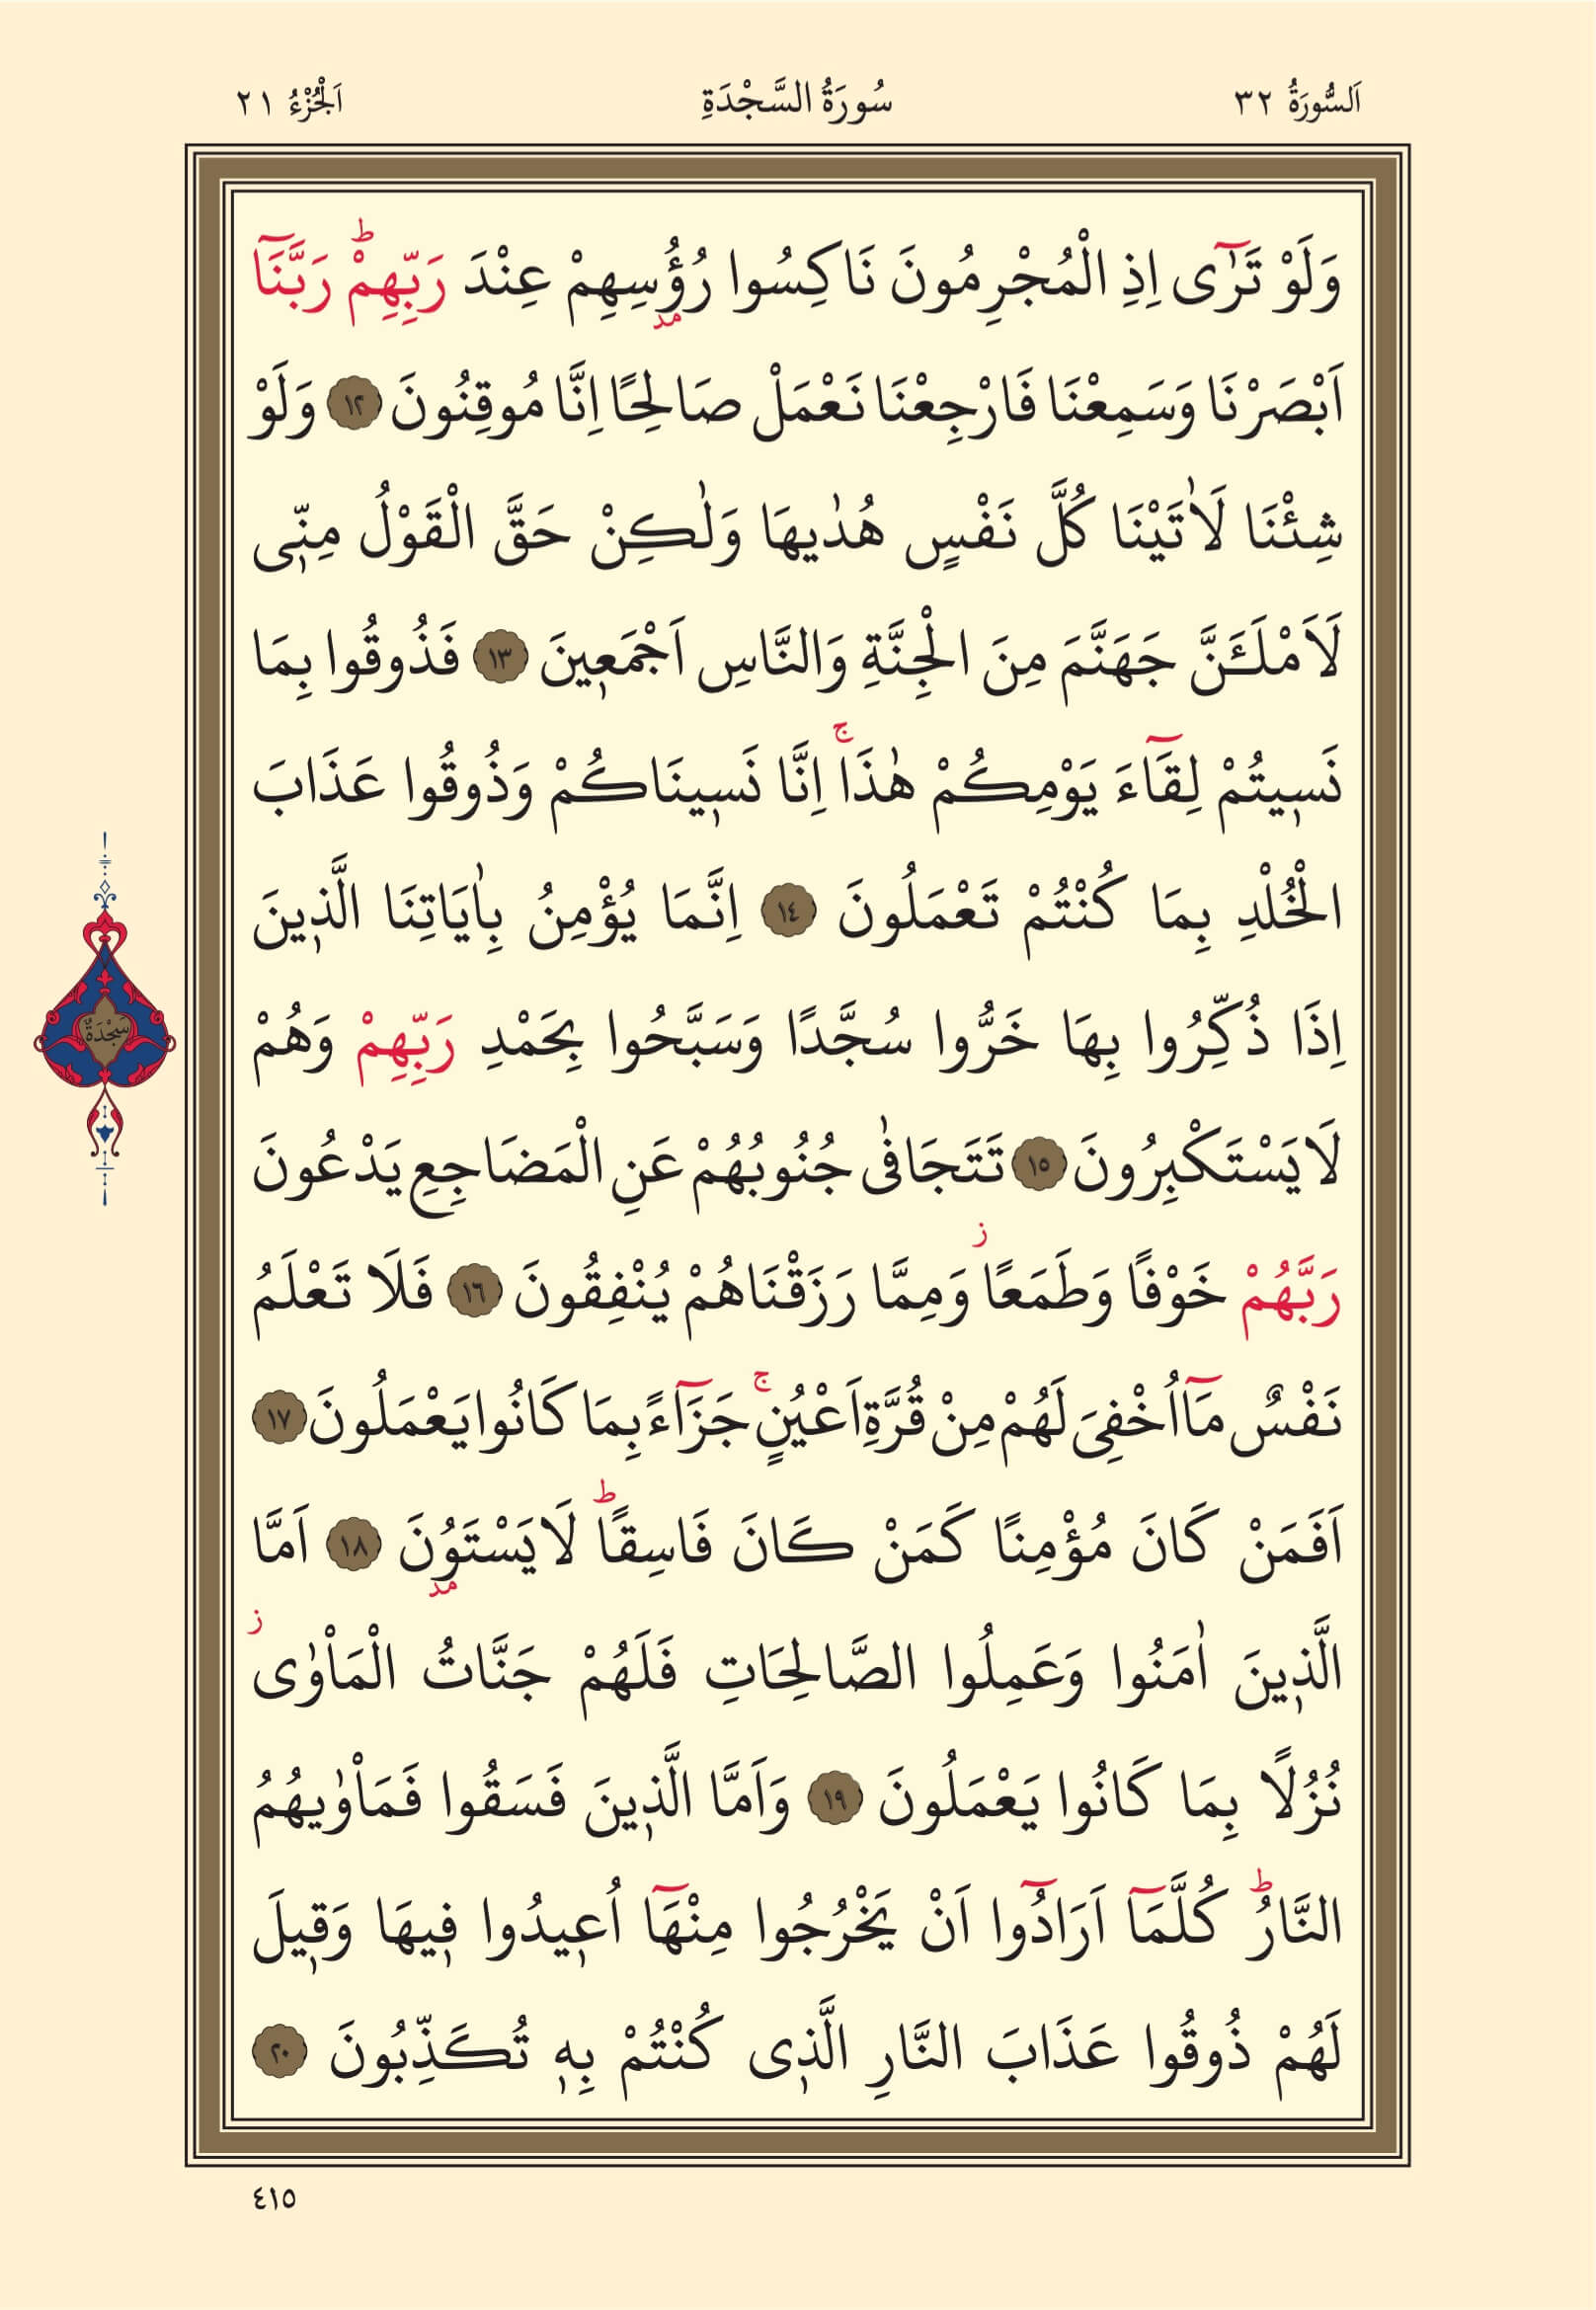 اَلسُّورَةُ ٣٢ سُورَةُ السَّجْدَةِ اَلْجُزْءُ ٢١
وَلَوْ تَرٰٓى اِذِ الْمُجْرِمُونَ نَاكِسُوا رُؤُ۫سِهِمْ عِنْدَ رَبِّهِمْۜ رَبَّنَٓا
اَبْصَرْنَا وَسَمِعْنَا فَارْجِعْنَا نَعْمَلْ صَالِحًا اِنَّا مُوقِنُونَ ١٢ وَلَوْ
شِئْنَا لَاٰتَيْنَا كُلَّ نَفْسٍ هُدٰيهَا وَلٰكِنْ حَقَّ الْقَوْلُ مِنّ۪ي
لَاَمْلَـَٔنَّ جَهَنَّمَ مِنَ الْجِنَّةِ وَالنَّاسِ اَجْمَع۪ينَ ١٣ فَذُوقُوا بِمَا
نَس۪يتُمْ لِقَٓاءَ يَوْمِكُمْ هٰذَاۚ اِنَّا نَس۪ينَاكُمْ وَذُوقُوا عَذَابَ
الْخُلْدِ بِمَا كُنْتُمْ تَعْمَلُونَ ١٤ اِنَّمَا يُؤْمِنُ بِاٰيَاتِنَا الَّذ۪ينَ
اِذَا ذُكِّرُوا بِهَا خَرُّوا سُجَّدًا وَسَبَّحُوا بِحَمْدِ رَبِّهِمْ وَهُمْ
سَجْدَةٌ
لَا يَسْتَكْبِرُونَ ١٥ تَتَجَافٰى جُنُوبُهُمْ عَنِ الْمَضَاجِعِ يَدْعُونَ
رَبَّهُمْ خَوْفًا وَطَمَعًاۘ وَمِمَّا رَزَقْنَاهُمْ يُنْفِقُونَ ١٦ فَلَا تَعْلَمُ
نَفْسٌ مَٓا اُخْفِيَ لَهُمْ مِنْ قُرَّةِ اَعْيُنٍۚ جَزَٓاءً بِمَا كَانُوا يَعْمَلُونَ ١٧
اَفَمَنْ كَانَ مُؤْمِنًا كَمَنْ كَانَ فَاسِقًاۜ لَا يَسْتَوُ۫نَ ١٨ اَمَّا
الَّذ۪ينَ اٰمَنُوا وَعَمِلُوا الصَّالِحَاتِ فَلَهُمْ جَنَّاتُ الْمَأْوٰىۘ
نُزُلًا بِمَا كَانُوا يَعْمَلُونَ ١٩ وَاَمَّا الَّذ۪ينَ فَسَقُوا فَمَأْوٰيهُمُ
النَّارُۜ كُلَّمَٓا اَرَادُٓوا اَنْ يَخْرُجُوا مِنْهَٓا اُع۪يدُوا ف۪يهَا وَق۪يلَ
لَهُمْ ذُوقُوا عَذَابَ النَّارِ الَّذ۪ي كُنْتُمْ بِه۪ تُكَذِّبُونَ ٢٠
٤١٥